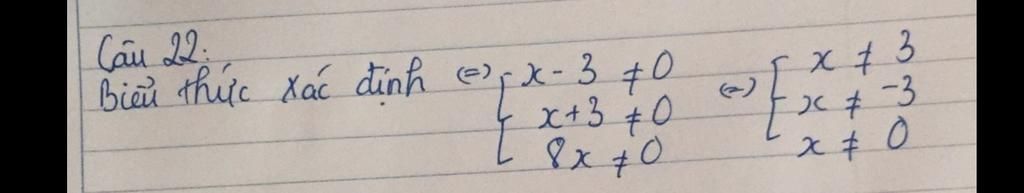 Câu 22:
Biểu thức xác định (=) { x - 3 ≠ 0 (=) { x ≠ 3
x + 3 ≠ 0 x ≠ -3
8x ≠ 0 x ≠ 0